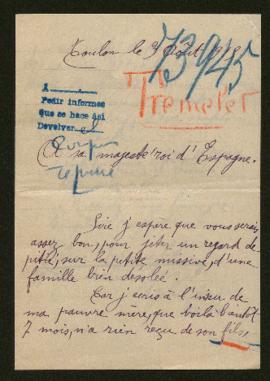 Toulon le 9 Août
73945
Tremelet
A
Pedir informes
que se hace así
Devolver
A sa majesté roi d'Espagne.
Sire j'espère que vous serais
assez bon, pour jeter un regard de
pitié, sur la petite missive, d'une
famille bien desolée.
Car j'ecris à l'insu de
ma pauvre mère, que voilà bientôt
7 mois, n'a rien reçu de son fils